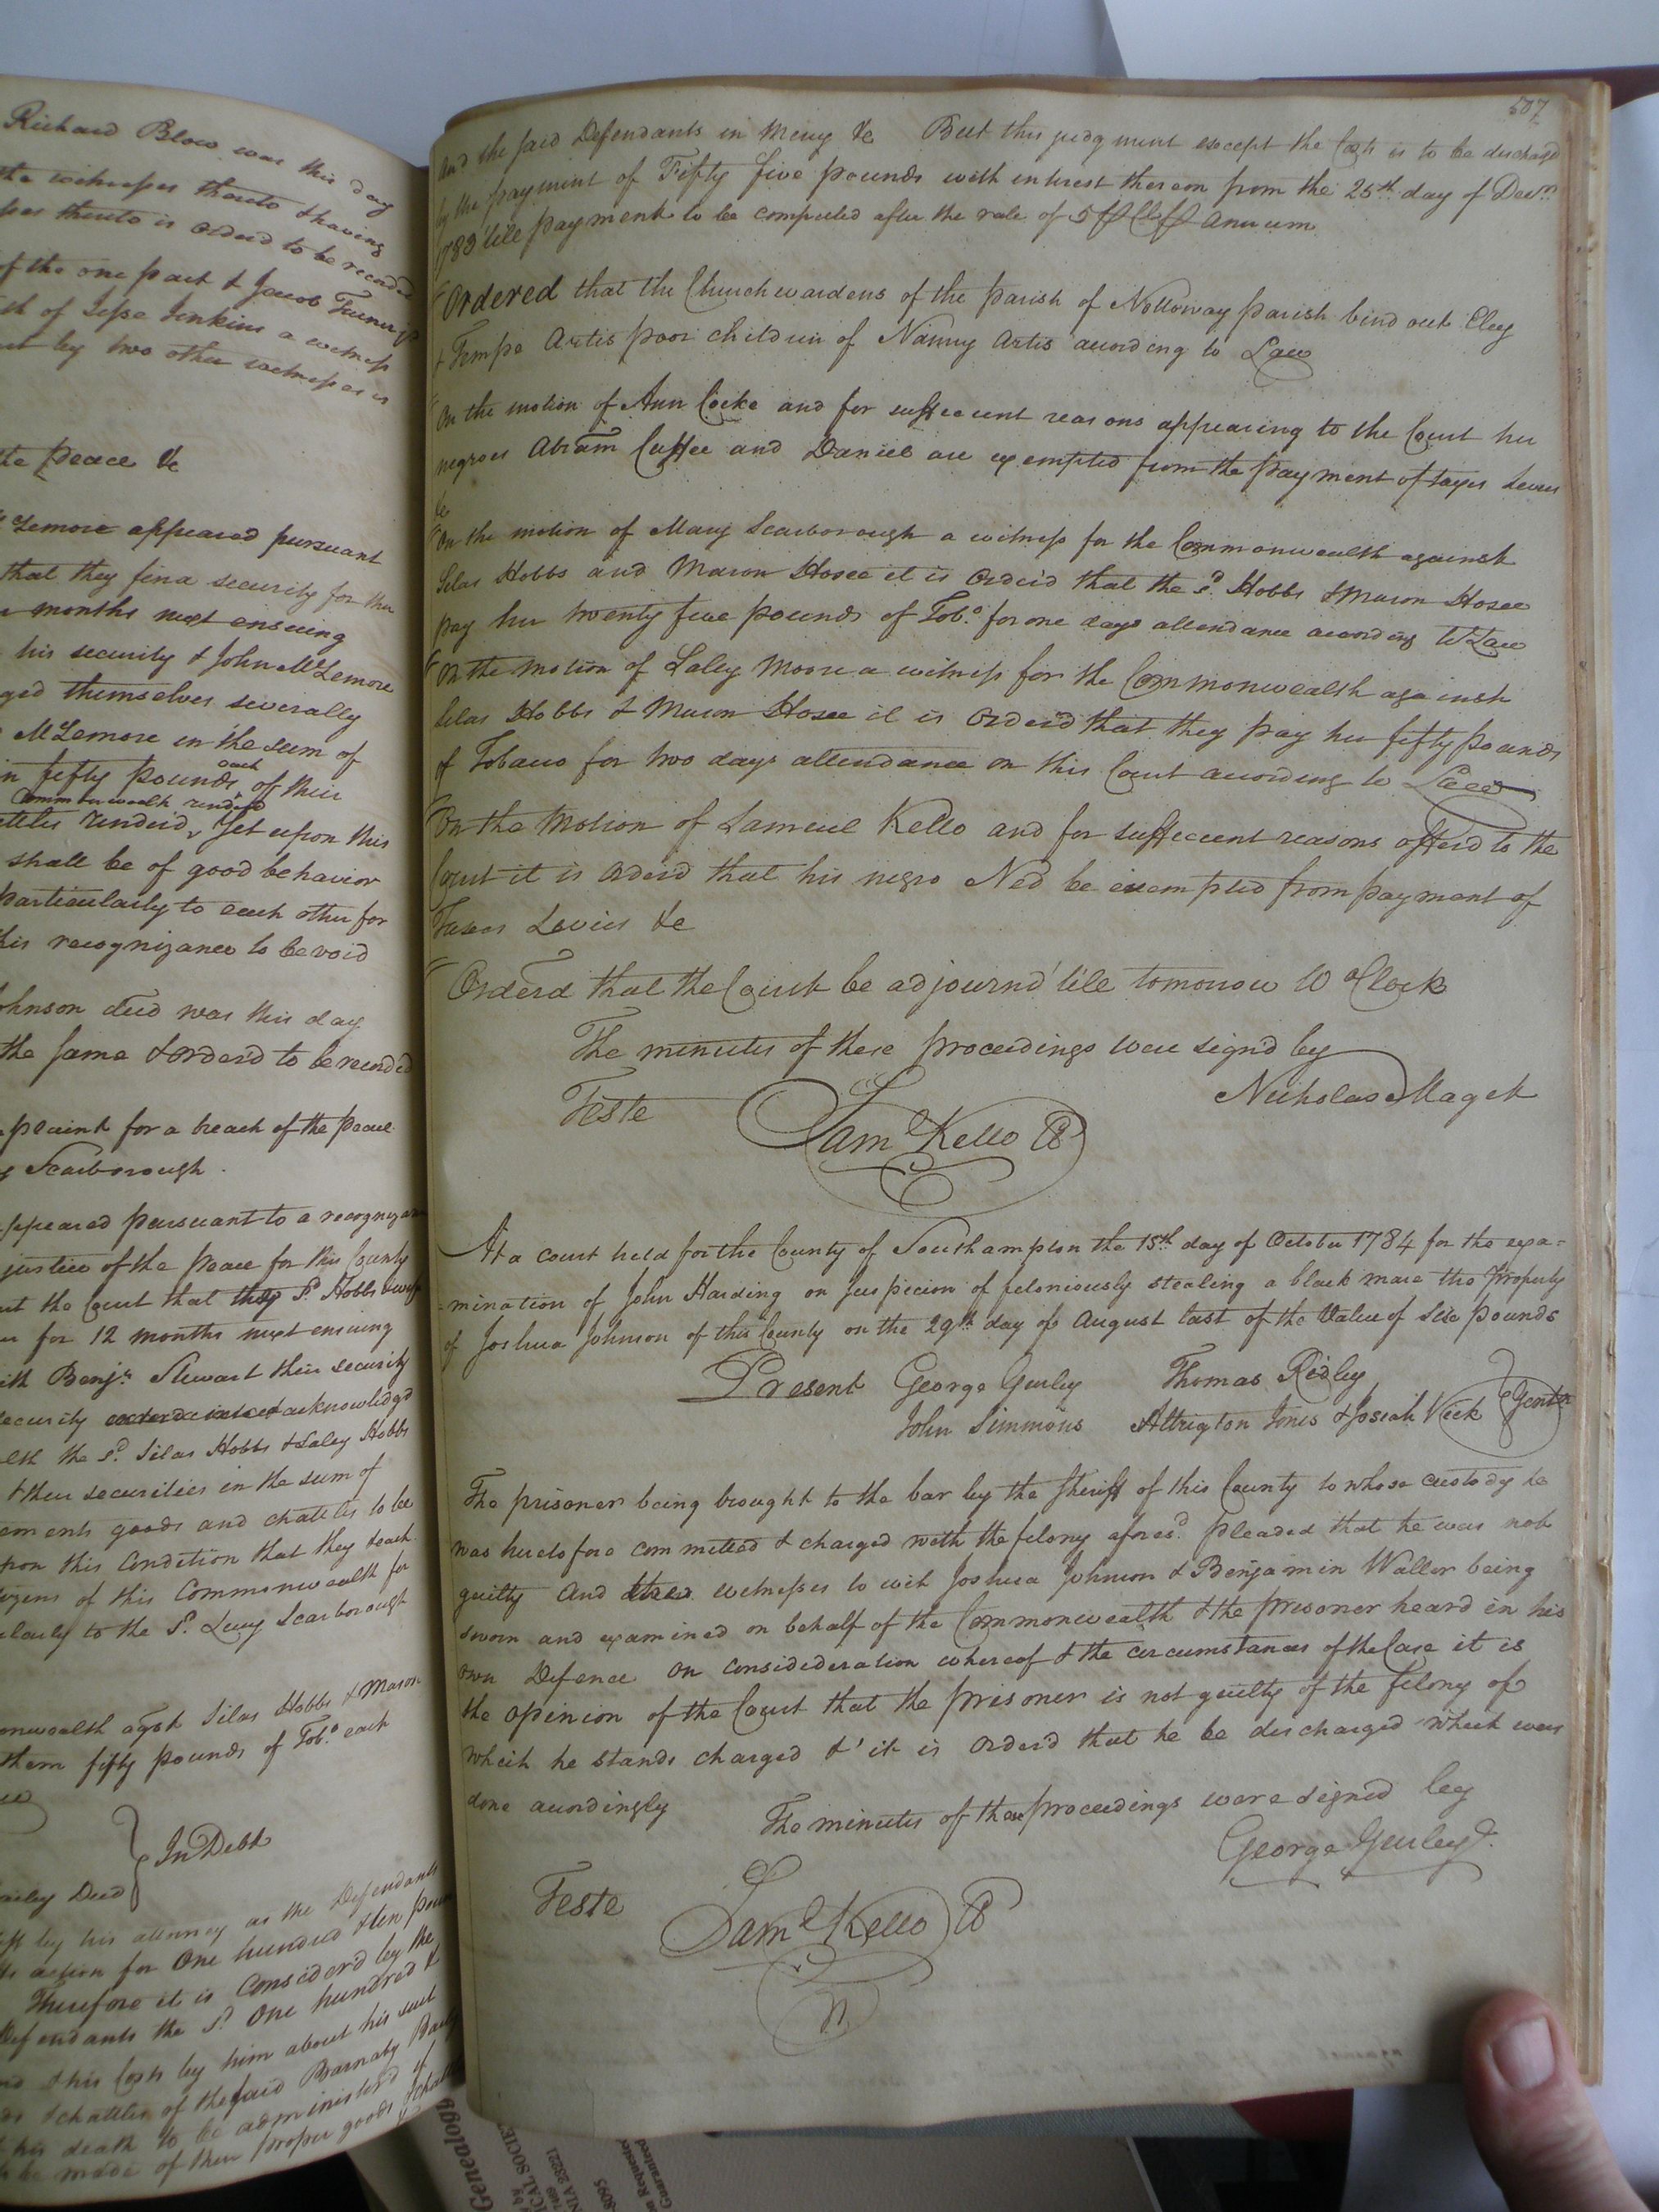 Richard Blow was this day
the witnesses thereto & having
thereto is Orderd to be recorded
of the one part & Jacob Turner
of Jesse Jenkins a witness
by two other witnesses is
the peace &c
Lemore appeared pursuant
that they find security for their
months next ensuing
his security & John McLemore
themselves severally
McLemore in the sum of
in fifty pounds each of their
Commonwealth renderd
renderd, Yet upon this
shall be of good behavior
particularly to each other for
this recognizance to be void
Johnson deed was this day
the same & Orderd to be recorded
plaint for a breach of the peace
Scarborough
appeared pursuant to a recognizance
justice of the peace for this County
the Court that they sd. Hobbs
for 12 months next ensuing
with Benjn. Stewart their security
security acknowledgd
the sd. Silas Hobbs & Saley Hobbs
& their securities in the sum of
goods and chattles to be
upon this Condition that they & each
of this Commonwealth for
to the sd. Lucy Scarborough
agst Silas Hobbs & Mason
them fifty pounds of Tobo. each
In Debt
Deed
by his attorney as the Defendants
action for One hundred & ten pounds
Therefore it is Considerd by the
Defendants the sd. One hundred &
& his Costs by him about his suit
& chattles of the said Barnaby
his death to be administerd if
to be made of their proper goods & chattles
507
And the said Defendants in Mercy &c But this judgment except the Costs is to be discharged
by the payment of Fifty five pounds with interest thereon from the 25th. day of Decr.
1783 till payment to be computed after the rate of 5 p Ct p annum
Ordered that the Churchwardens of the parish of Nottoway parish bind out Eley
& Tempe Artis poor children of Nanny Artis according to Law
On the motion of Ann Cocke and for suffiecient reasons appearing to the Court her
negroes Abram Cuffee and Daniel are exempted from the payment of taxes Levies
&c
On the motion of Mary Scarborough a witness for the Commonwealth against
Silas Hobbs and Mason Hosee it is Orderd that the sd. Hobbs & Mason Hosee
pay her twenty five pounds of Tobo. for one days attendance according to Law
On the Motion of Saley Moore a witness for the Commonwealth against
Silas Hobbs & Mason Hosee it is Orderd that they pay her fifty pounds
of Tobacco for two days attendance on this Court according to Law
On the Motion of Samuel Kello and for suffecient reasons offerd to the
Court it is Orderd that his negro Ned be exempted from payment of
Taxes Levies &c
Orderd that the Court be adjournd till tomorrow 10 oClock
The minutes of these proceedings were signd by
Nicholas Maget
Teste Saml Kello CC
At a court held for the County of Southampton the 15th day of October 1784 for the exa=
=mination of John Harding on suspicion of feloniously stealing a black mare the property
of Joshua Johnson of this County on the 29th day of August last of the Value of six pounds
Present George Gurley Thomas Ridley
John Simmons Altrigton Jones & Josiah Vick Gentn
The prisoner being brought to the bar by the Sheriff of this County to whose custody he
was heretofore committed & charged with the felony aforesd. pleaded that he was not
guilty And witnesses to wit Joshua Johnson & Benjamin Waller being
sworn and examined on behalf of the Commonwealth & the prisoner heard in his
own Defence On considideration whereof & the circumstances of the Case it is
the opinion of the Court that the prisoner is not guilty of the felony of
which he stands charged & it is Orderd that he be discharged which was
done accordingly
The minutes of these proceedings were signed by
George Gurley
Teste Saml Kello CC
Genealogy